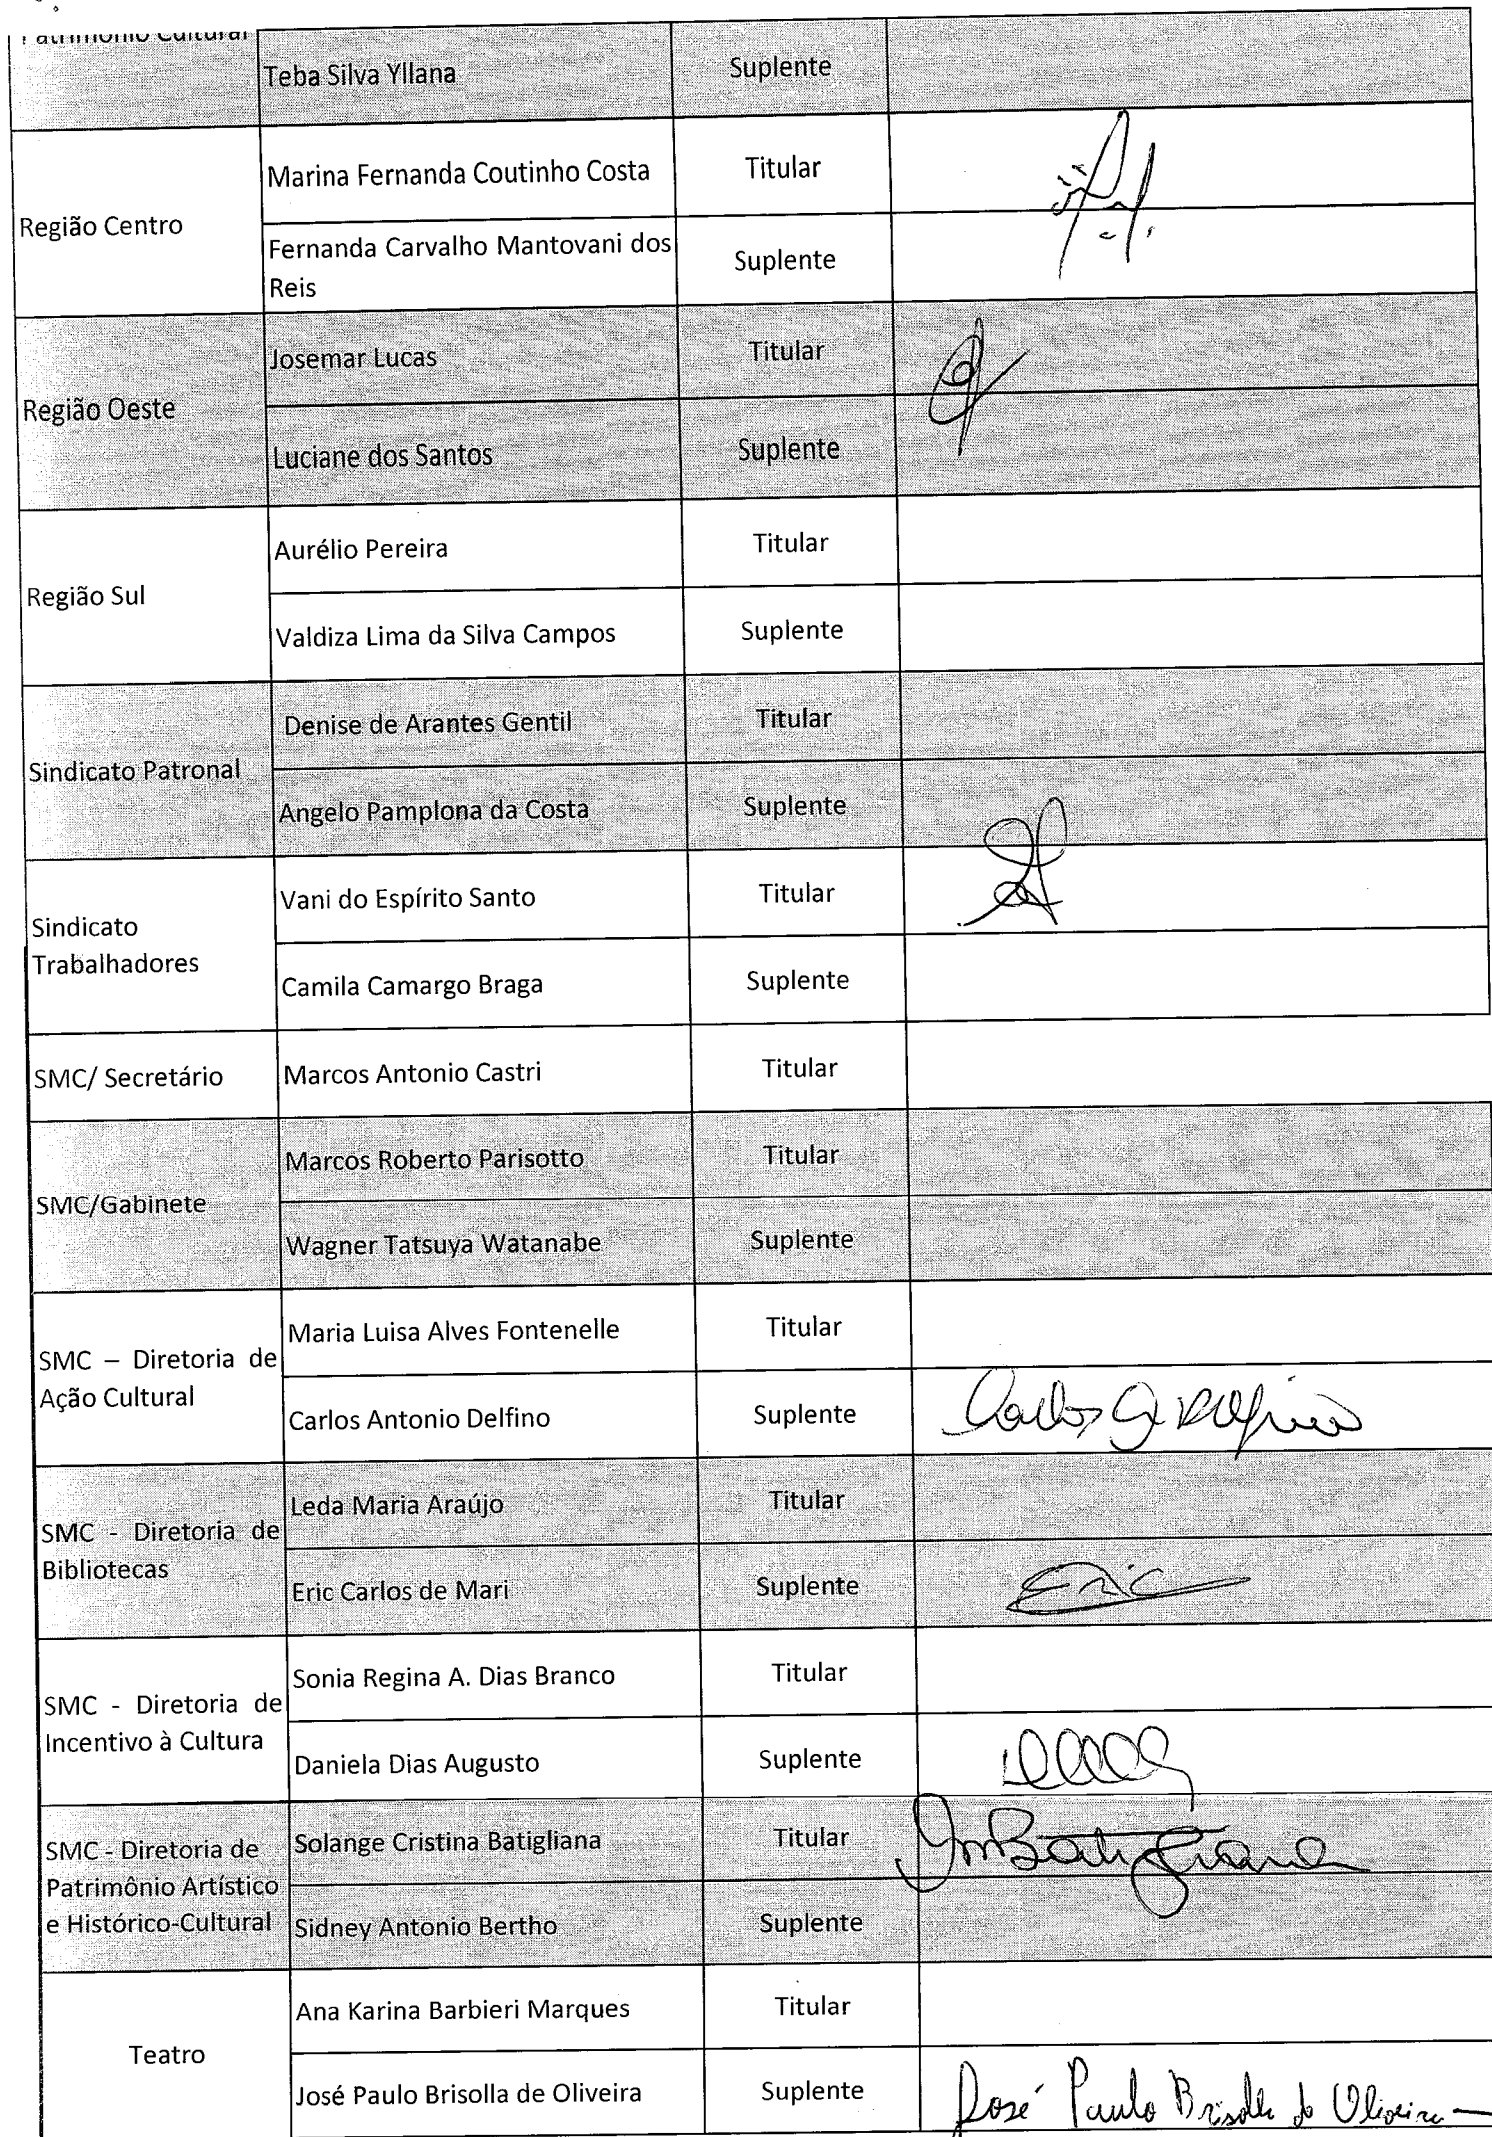 Patrimônio Cultural
Teba Silva Yllana Suplente
Região Centro
Marina Fernanda Coutinho Costa Titular
Fernanda Carvalho Mantovani dos
Reis
Suplente
Região Oeste
Josemar Lucas Titular
Luciane dos Santos Suplente
Região Sul
Aurélio Pereira Titular
Valdiza Lima da Silva Campos Suplente
Sindicato Patronal
Denise de Arantes Gentil Titular
Angelo Pamplona da Costa Suplente
Sindicato
Trabalhadores
Vani do Espírito Santo Titular
Camila Camargo Braga Suplente
SMC/ Secretário Marcos Antonio Castri Titular
SMC/Gabinete
Marcos Roberto Parisotto Titular
Wagner Tatsuya Watanabe Suplente
SMC – Diretoria de
Ação Cultural
Maria Luisa Alves Fontenelle Titular
Carlos Antonio Delfino Suplente Carlos A Delfino
SMC - Diretoria de
Bibliotecas
Leda Maria Araújo Titular
Eric Carlos de Mari Suplente Eric
SMC - Diretoria de
Incentivo à Cultura
Sonia Regina A. Dias Branco Titular
Daniela Dias Augusto Suplente
SMC - Diretoria de
Patrimônio Artístico
e Histórico-Cultural
Solange Cristina Batigliana Titular Batigliana
Sidney Antonio Bertho Suplente
Teatro
Ana Karina Barbieri Marques Titular
José Paulo Brisolla de Oliveira Suplente José Paulo Brisolla de Oliveira